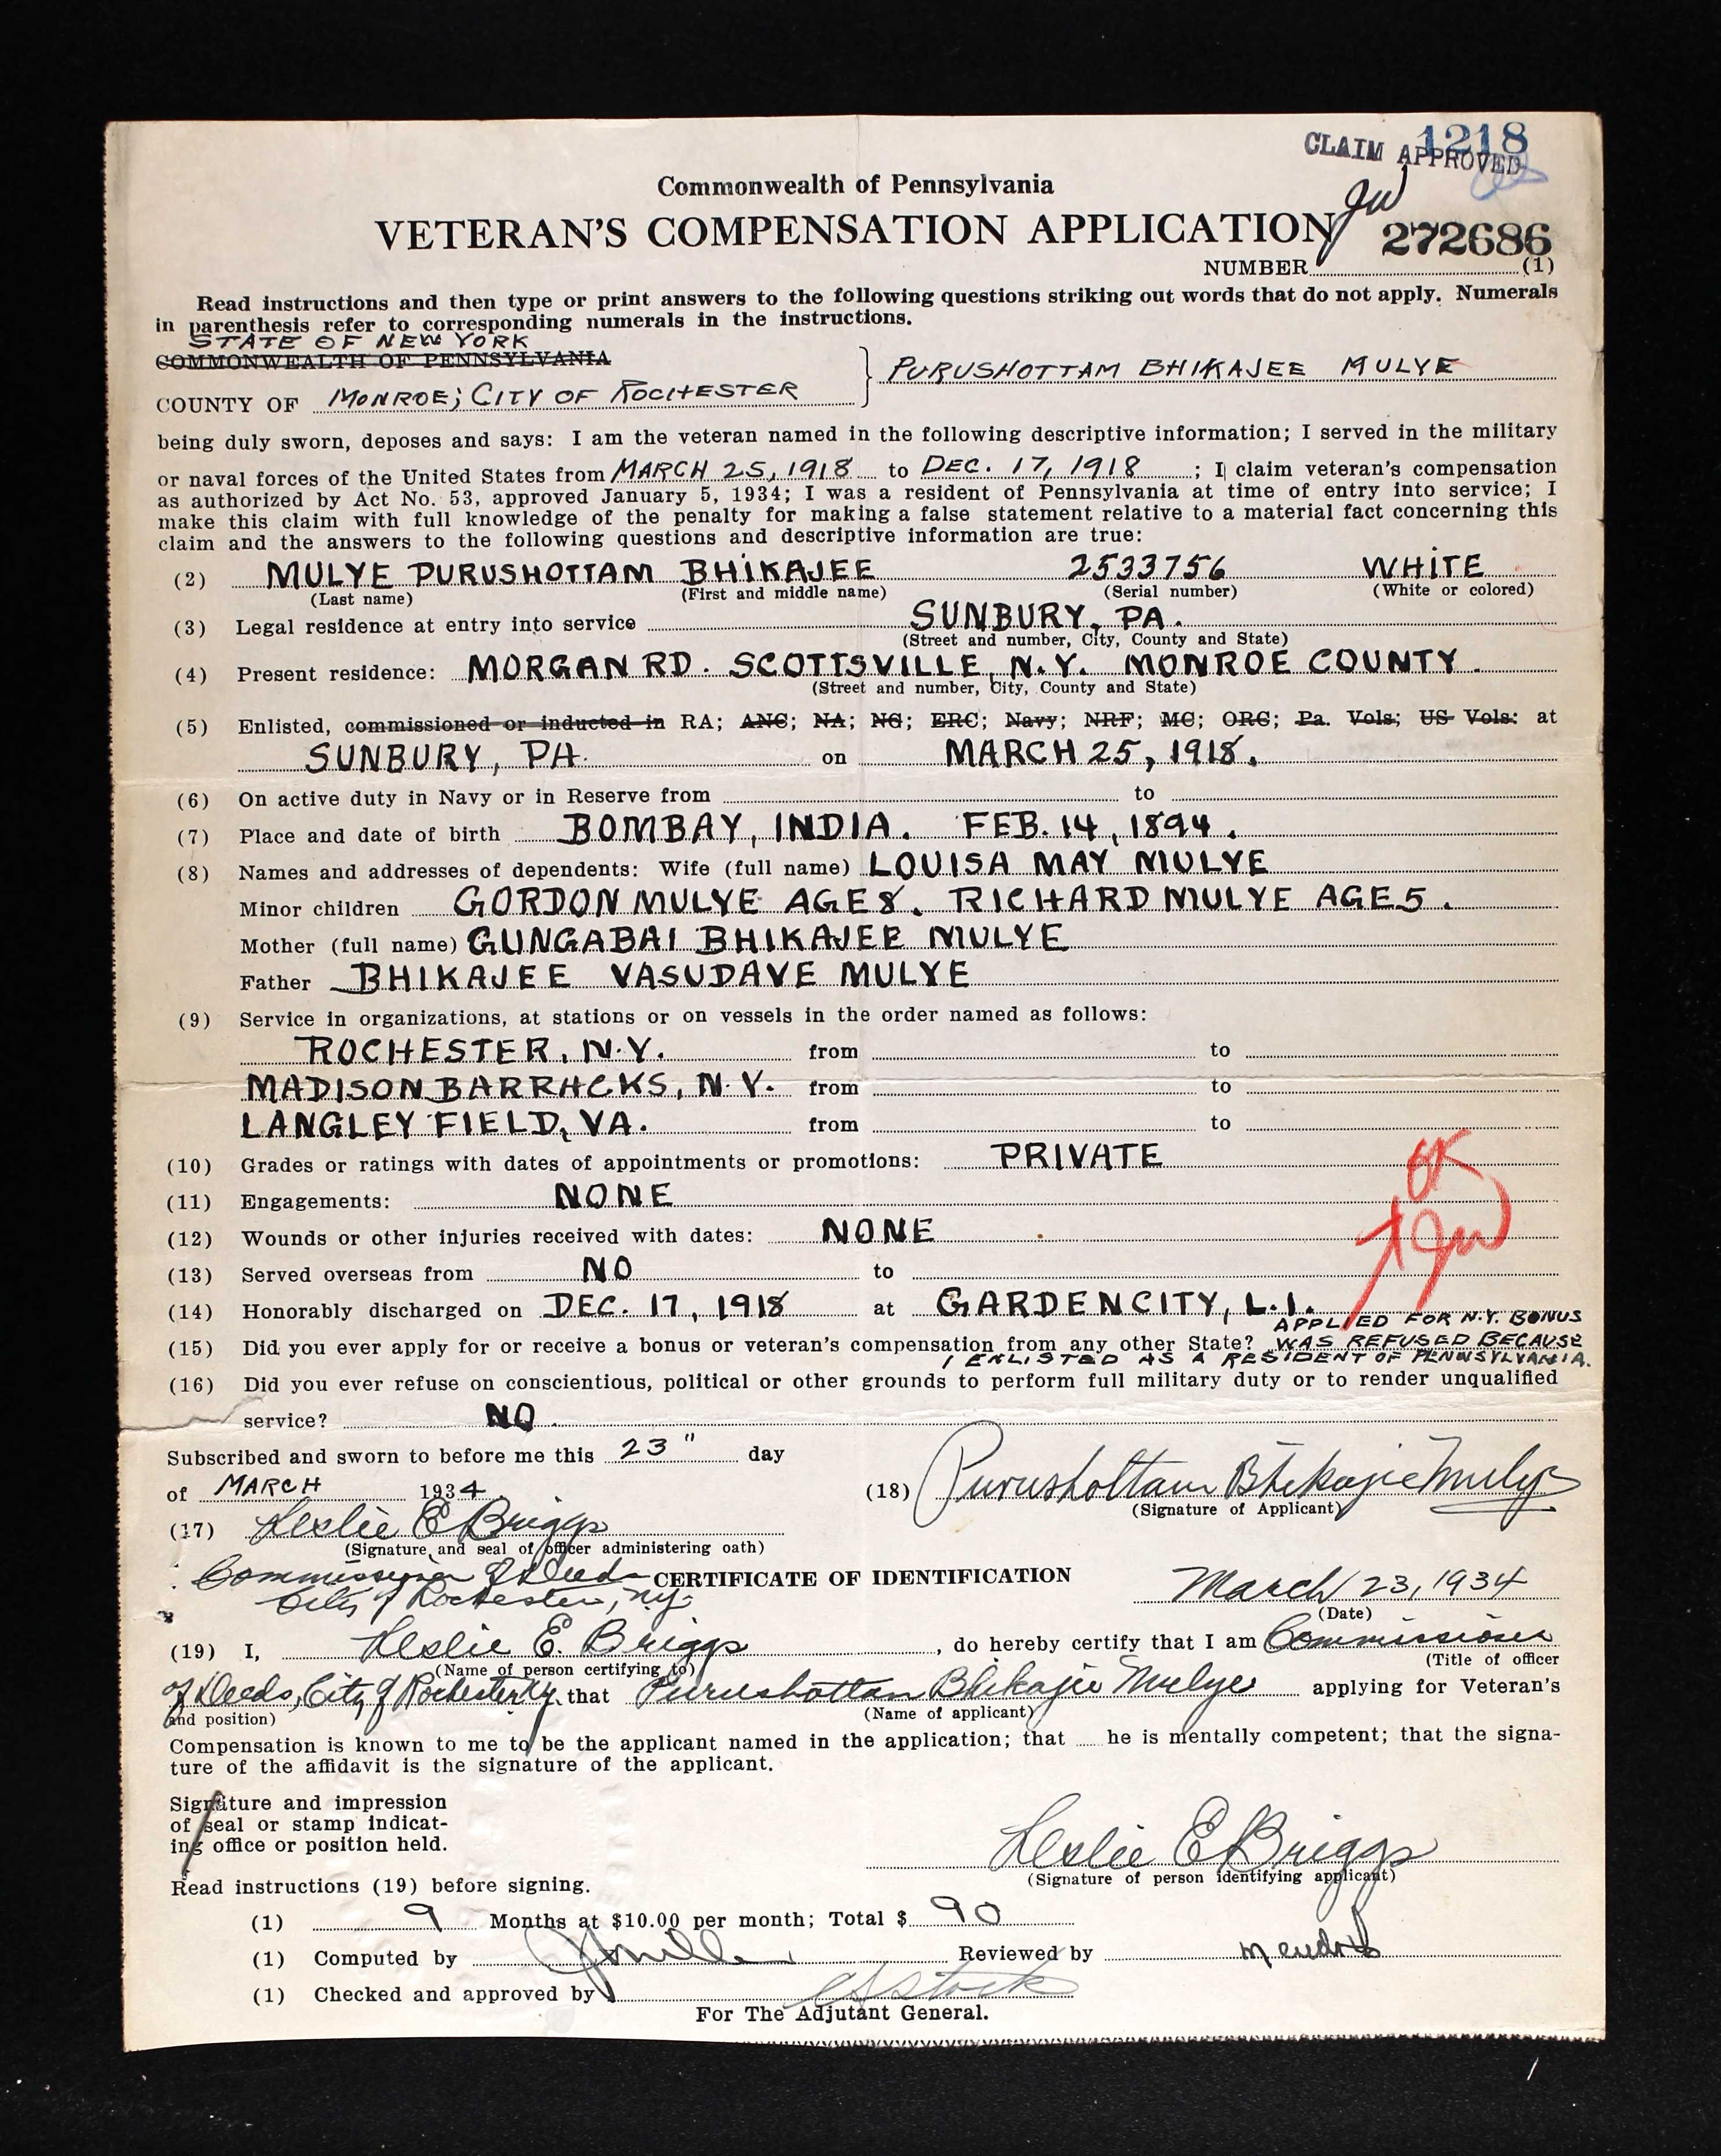 1218
CLAIM APPROVED
Commonwealth of Pennsylvania
VETERAN'S COMPENSATION APPLICATION
JW
272686
NUMBER (1)
Read instructions and then type or print answers to the following questions striking out words that do not apply. Numerals
in parenthesis refer to corresponding numerals in the instructions.
STATE OF NEW YORK
COMMONWEALTH OF PENNSYLVANIA
PURUSHOTTAM BHIKAJEE MULYE
COUNTY OF MONROE; CITY OF ROCHESTER
being duly sworn, deposes and says: I am the veteran named in the following descriptive information; I served in the military
or naval forces of the United States from MARCH 25, 1918 to DEC. 17, 1918 ; I claim veteran's compensation
as authorized by Act No. 53, approved January 5, 1934; I was a resident of Pennsylvania at time of entry into service; I
make this claim with full knowledge of the penalty for making a false statement relative to a material fact concerning this
claim and the answers to the following questions and descriptive information are true:
(2) MULYE PURUSHOTTAM BHIKAJEE 2533756 WHITE
(Last name) (First and middle name) (Serial number) (White or colored)
(3) Legal residence at entry into service SUNBURY, PA.
(Street and number, City, County and State)
(4) Present residence: MORGAN RD. SCOTTSVILLE, N.Y. MONROE COUNTY.
(Street and number, City, County and State)
(5) Enlisted, commissioned or inducted in RA; ANC; NA; NG; ERC; Navy; NRF; MC; ORC; Pa. Vols; US Vols: at
SUNBURY, PA. on MARCH 25, 1918.
(6) On active duty in Navy or in Reserve from to
(7) Place and date of birth BOMBAY, INDIA. FEB. 14, 1894.
(8) Names and addresses of dependents: Wife (full name) LOUISA MAY MULYE
Minor children GORDON MULYE AGE 8. RICHARD MULYE AGE 5.
Mother (full name) GUNGABAI BHIKAJEE MULYE
Father BHIKAJEE VASUDAVE MULYE
(9) Service in organizations, at stations or on vessels in the order named as follows:
ROCHESTER, N.Y. from to
MADISON BARRACKS, N.Y. from to
LANGLEY FIELD, VA. from to
(10) Grades or ratings with dates of appointments or promotions: PRIVATE
OK
(11) Engagements: NONE
(12) Wounds or other injuries received with dates: NONE
JW
(13) Served overseas from NO to
(14) Honorably discharged on DEC. 17, 1918 at GARDEN CITY, L.I.
APPLIED FOR N.Y. BONUS
(15) Did you ever apply for or receive a bonus or veteran's compensation from any other State? WAS REFUSED BECAUSE
I ENLISTED AS A RESIDENT OF PENNSYLVANIA.
(16) Did you ever refuse on conscientious, political or other grounds to perform full military duty or to render unqualified
service? NO.
Subscribed and sworn to before me this 23" day
of MARCH 1934
(18) Purushottam Bhikajie Mulye
(Signature of Applicant)
(17) Leslie E Briggs
(Signature and seal of officer administering oath)
Commissioner of Deeds
CERTIFICATE OF IDENTIFICATION
City of Rochester, N.Y.
March 23, 1934
(Date)
(19) I, Leslie E. Briggs , do hereby certify that I am Commissioner
(Name of person certifying to) (Title of officer
of Deeds, City of Rochester N.Y. that Purushottan Bhikajie Mulye applying for Veteran's
and position) (Name of applicant)
Compensation is known to me to be the applicant named in the application; that he is mentally competent; that the signa-
ture of the affidavit is the signature of the applicant.
Signature and impression
of seal or stamp indicat-
ing office or position held.
Leslie E Briggs
(Signature of person identifying applicant)
Read instructions (19) before signing.
(1) 9 Months at $10.00 per month; Total $ 90
(1) Computed by Reviewed by
(1) Checked and approved by
For The Adjutant General.